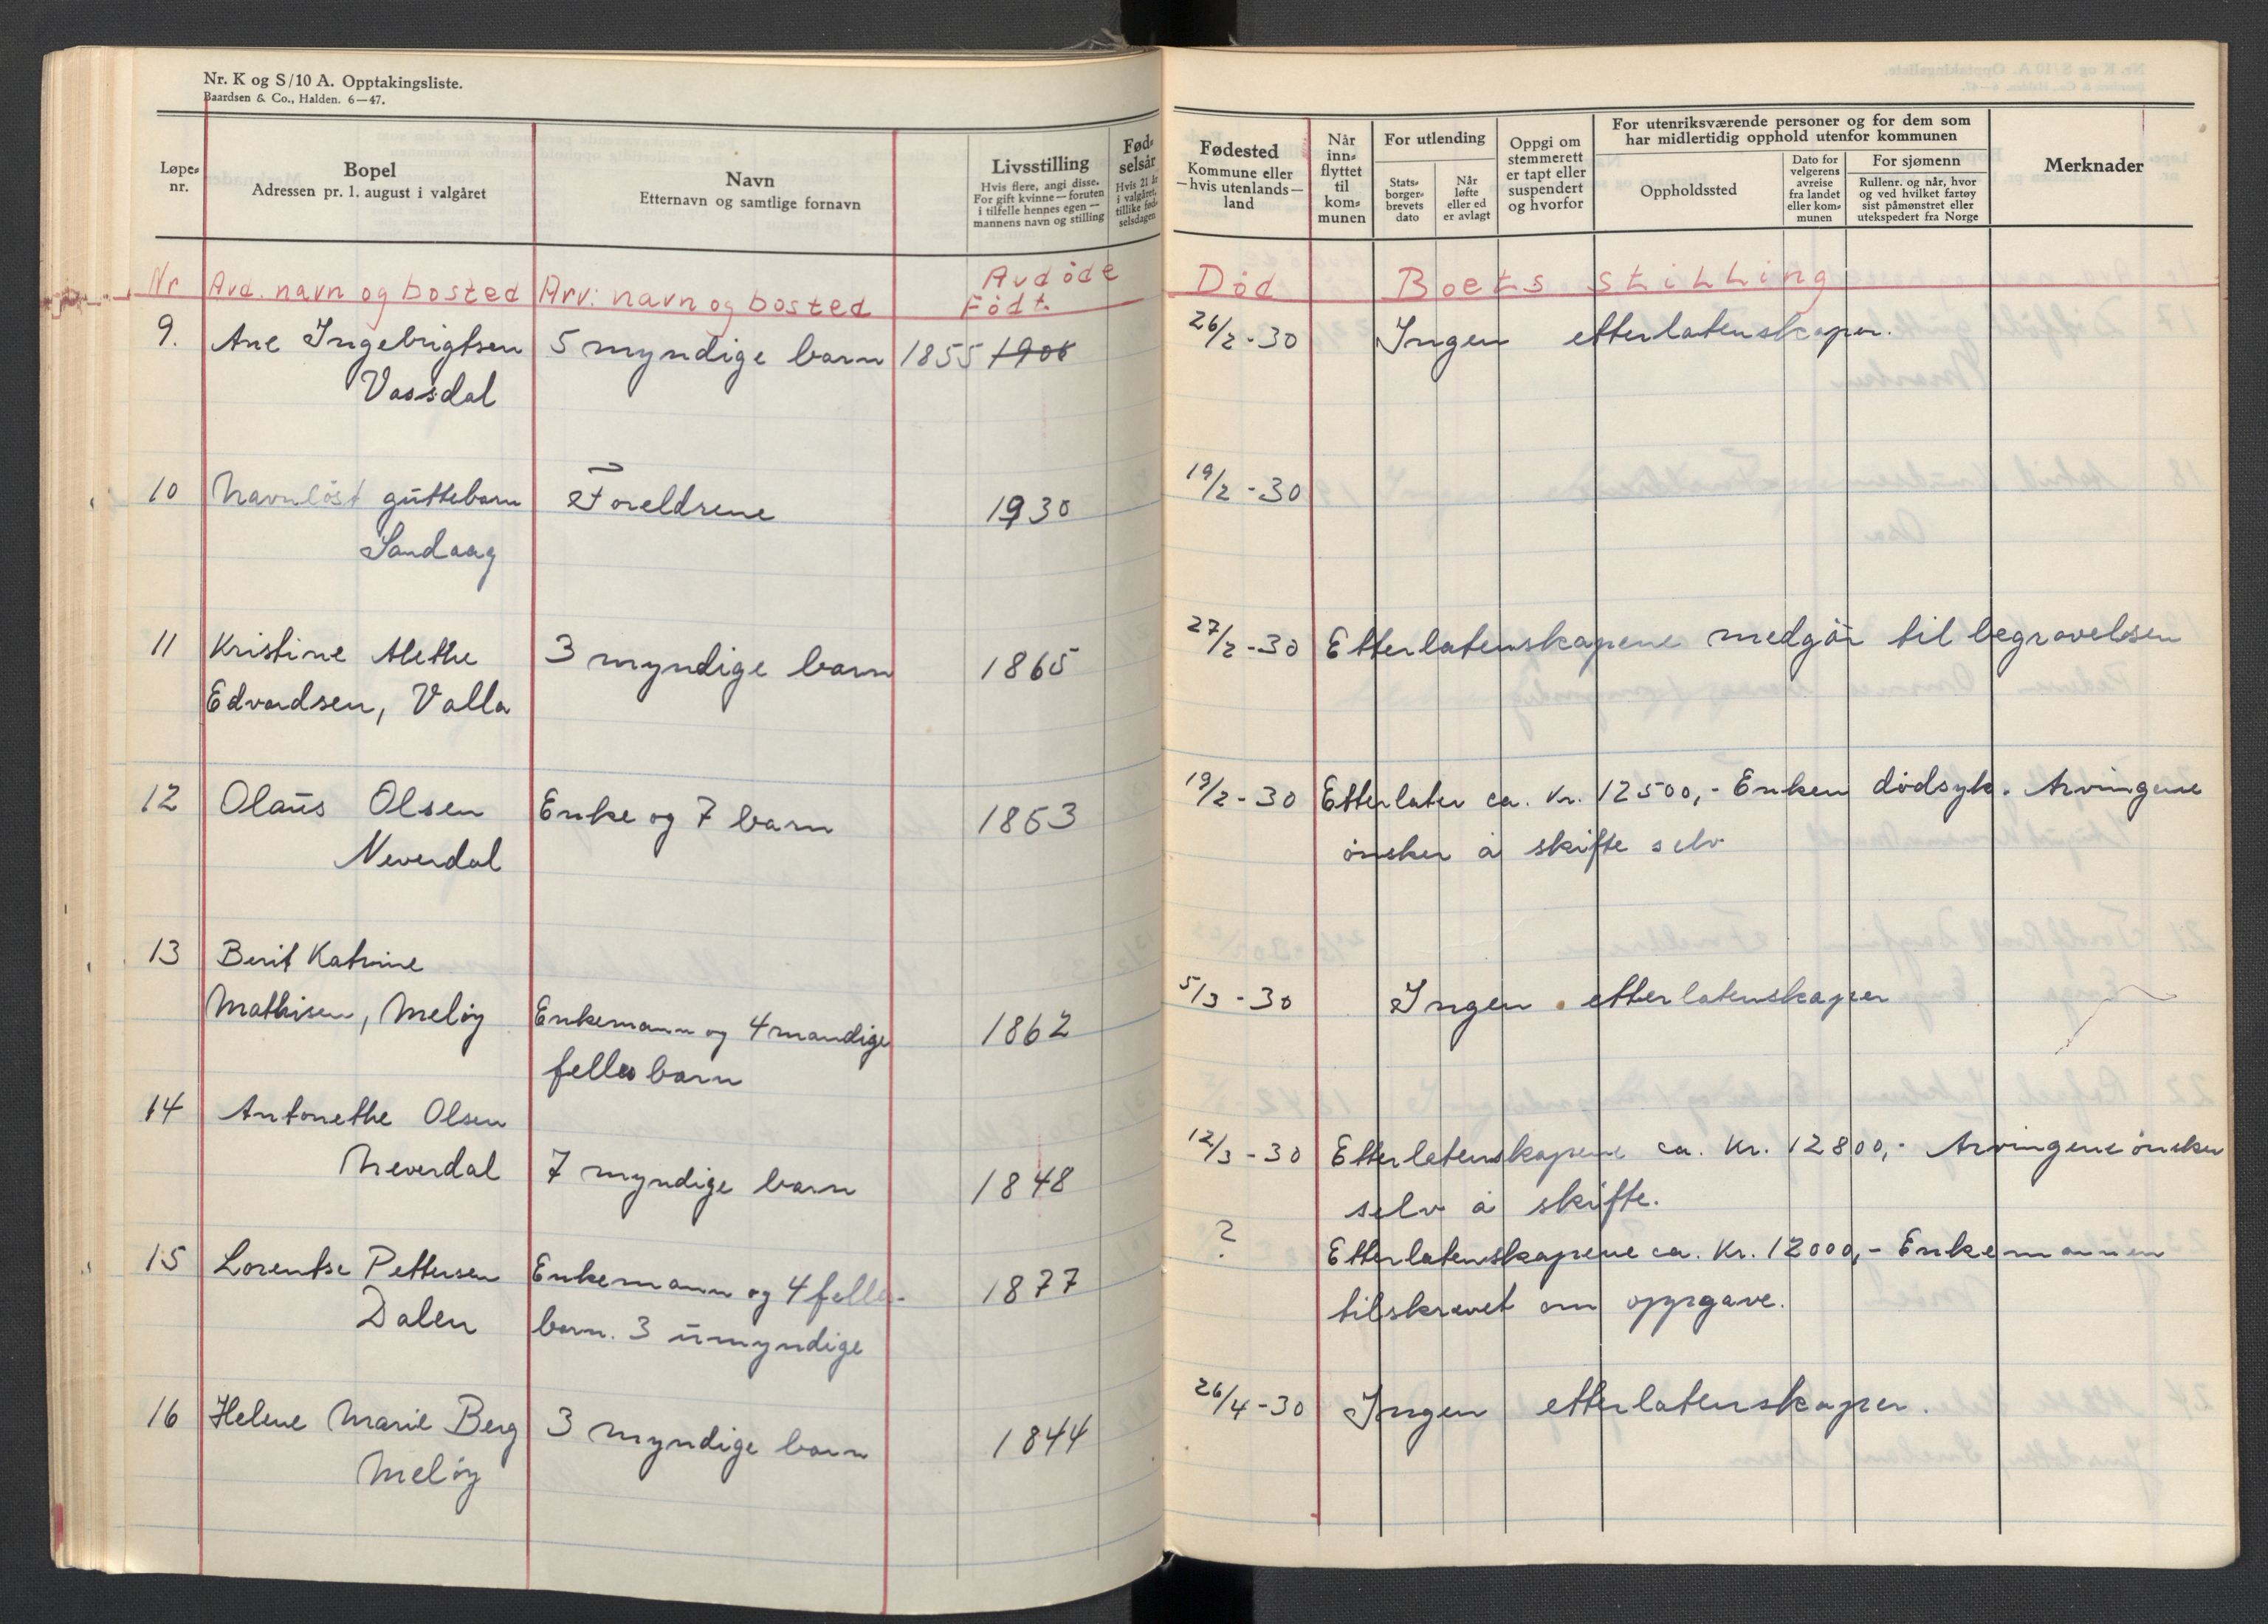 Nr. K og S/10 A. Opptakingsliste.
Baardsen & Co., Halden. 6—47.
Løpe-
nr.
Bopel
Adressen pr. 1. august i valgåret
Navn
Etternavn og samtlige fornavn
Livsstilling
Hvis flere, angi disse.
For gift kvinne — foruten
i tilfelle hennes egen —
mannens navn og stilling
Fød-
selsår
Hvis 21 år
i valgåret,
tillike fød-
selsdagen
Fødested
Kommune eller
— hvis utenlands —
land
Når
inn-
flyttet
til
kom-
munen
For utlending
Stats-
borger-
brevets
dato
Når
løfte
eller ed
er avlagt
Oppgi om
stemmerett
er tapt eller
suspendert
og hvorfor
For utenriksværende personer og for dem som
har midlertidig opphold utenfor kommunen
Oppholdssted
Dato for
velgerens
avreise
fra landet
eller kom-
munen
For sjømenn
Rullenr. og når, hvor
og ved hvilket fartøy
sist påmønstret eller
utekspedert fra Norge
Merknader
Nr Avd. navn og bosted Arv: navn og bosted Avdöde
Födt. Död Boets stilling
9. Ane Ingebrigtsen 5 myndige barn 1855 1906 26/2-30 Ingen etterlatenskaper.
Vassdal
10 Navnlöst guttebarn Foreldrene 1930 19/2-30
Sandaag
11 Kristine Alethe 3 myndige barn 1865 27/2-30 Etterlatenskapene medgår til begravelsen
Edvardsen, Valla
12 Olaus Olsen Enke og 7 barn 1853 19/2-30 Etterlater ca. kr. 12500,- Enken dödsyk. Arvingene
Neverdal önsker å skifte selv
13 Berit Katrine
Mathisen, Melöy Enkemann og 4 mandige 1862 5/3-30 Ingen etterlatenskaper
felles barn
14 Antonethe Olsen
Neverdal 7 myndige barn 1848 12/3-30 Etterlatenskapene ca. Kr. 12800,- Arvingene önsker
selv å skifte.
15 Lorentse Pettersen Enkemann og 4 felles- 1877 ? Etterlatenskapene ca. Kr. 12000,- Enkemannen
Dalen barn. 3 umyndige tilskrevet om oppgave.
16 Helene Marie Berg 3 myndige barn 1844 26/4-30 Ingen etterlatenskaper.
Melöy